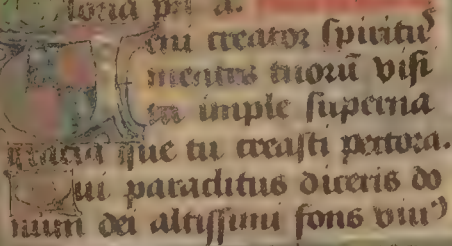 Gloria pri a.
Ueni creator spiritꝰ
mentes tuoꝝ̄ visi
ta imple superna
gracia que tu creasti pectora.
Qui paraclitus diceris do
num dei altissimi fons viuꝰ